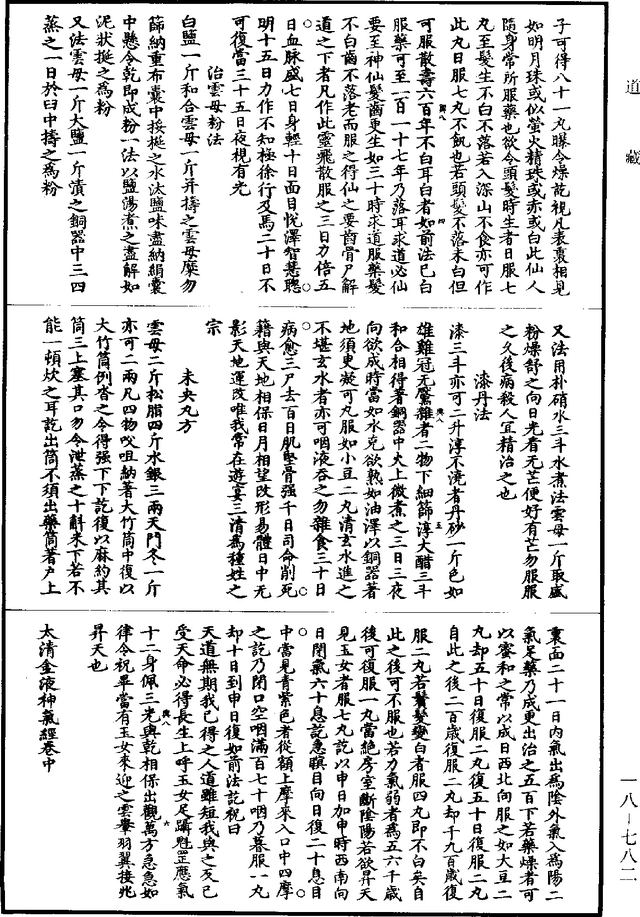 道藏
子可得八十一丸曝令燥乾視凡表裏相見
如明月珠或似螢火精珠或赤或白此仙人
隨身常所服藥也欲令頭髮時生者日服七
丸至髮生不白不落若入深山不食亦可作
此丸日服七丸不飢也若頭髮不落未白但
可服散壽六百年不白耳白者如前法已白
服藥可至一百一十七年乃落耳求道必仙
要至神仙髮齒更生如三十時求道服藥髮
不白齒不落老而服之得仙之要齒骨尸解
道之下者凡作此靈飛散服之三日力倍五
日血脉盛七日身輕十日面目悅澤智慧聰
明十五日力作不知極徐行及馬二十日不
可復當三十五日夜視有光
治雲母粉法
白鹽一斤和合雲母一斤并擣之雲母糜勿
篩納重布囊中挼挻之水汰鹽味盡納絹囊
中懸令乾即成粉一法以鹽湯煮之盡解如
泥狀挻之為粉
又法雲母一斤大鹽一斤漬之銅器中三四
蒸之一日於臼中擣之為粉
又法用朴硝水三斗水煮法雲母一斤取盛
粉燥舒之向日光看无芒便好有芒勿服服
之久後病殺人宜精治之也
漆丹法
漆三斗亦可二升淳不澆者丹砂一斤色如
雄雞冠无驪雜者二物下細篩淳大醋三斗
和合相得著銅器中火上微煮之三日三夜
向欲成時當如水克欲熟如油澤以銅器著
地須更凝可丸服如小豆二丸清玄水進之
不堪玄水者亦可咽液吞之勿雜食三十日
病愈三尸去百日肌堅骨强千日司命削死
籍與天地相保日月相望改形易體日中无
影天地運改唯我常在遊宴三清為種姓之
宗
未央丸方
雲母二斤松脂四斤水銀三兩天門冬一斤
亦可二兩凡四物㕮咀納著大竹筒中復以
大竹筒例沓之令得强下下訖復以麻約其
筒三上塞其口勿令泄蒸之十斛米下若不
能一頓炊之耳訖出筒不須出藥筒著户上
裏面二十一日內氣出為陰外氣入為陽二
氣足藥乃成更出治之五百下若藥燥者可
以蜜和之常以成日西北向服之如大豆二
丸却五十日復服二丸復五十日復服二丸
自此之後二百歲復服二丸却千九百歲復
服二丸若鬢髮變白者服四丸即不白矣自
此之後可不服也若力氣弱者為五六千歲
後可復服一丸當絕房室斷陰陽若欲昇天
見玉女者服七丸訖以申日加申時西南向
日閉氣六十息訖急瞑目向日復二十息目
中當見青紫色者從額上摩來入口中四摩
之訖乃閉口空咽滿百七十咽乃暮服一丸
却十日到申日復如前法訖祝曰
天道無期我已得之人道雖短我與之反已
受天命必得長生上呼玉女足躡魁罡應氣
十二身佩三光與乾相保出觀萬方急急如
律令祝畢當有玉女來迎之雲轝羽翼接兆
昇天也
太清金液神氣經卷中
一八－七八二